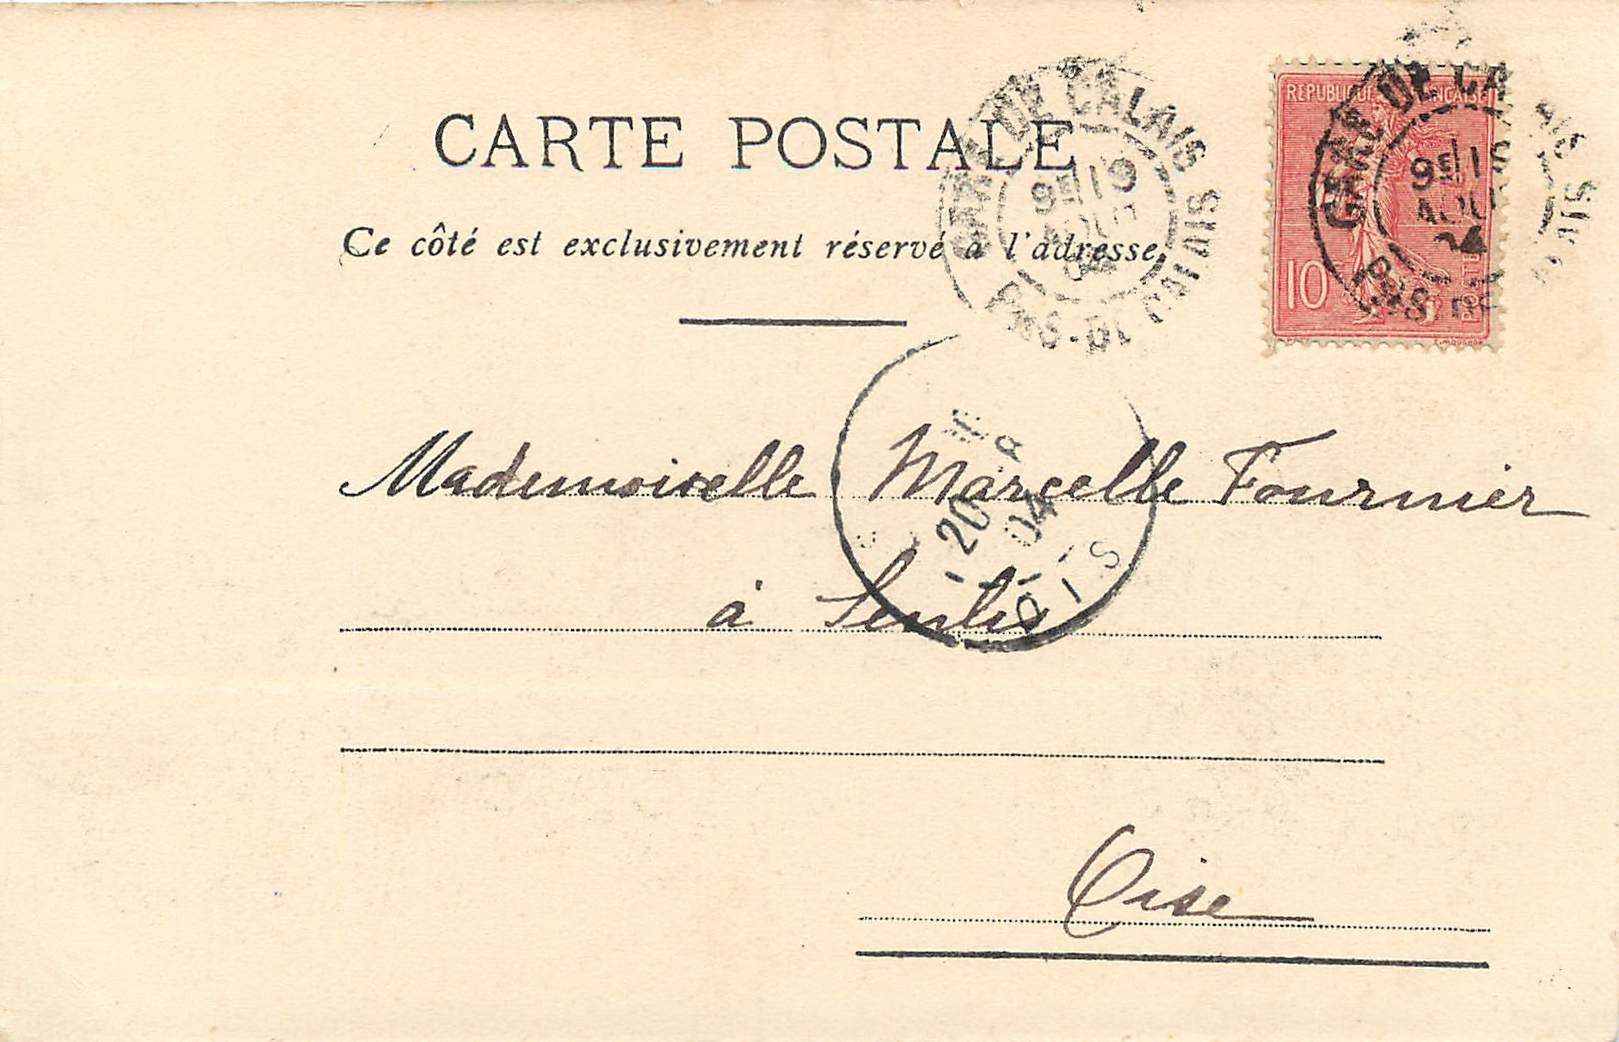 CARTE POSTALE
Ce côté est exclusivement réservé à l'adresse
GARE DE CALAIS
9E 19
AOUT
04
PAS-DE CALAIS
REPUBLIQUE FRANCAISE
10
GARE DE CALAIS
9E 1
AOU
04
PAS DE
Mademoiselle Marcelle Fournier
20
04
à Senlis
Oise